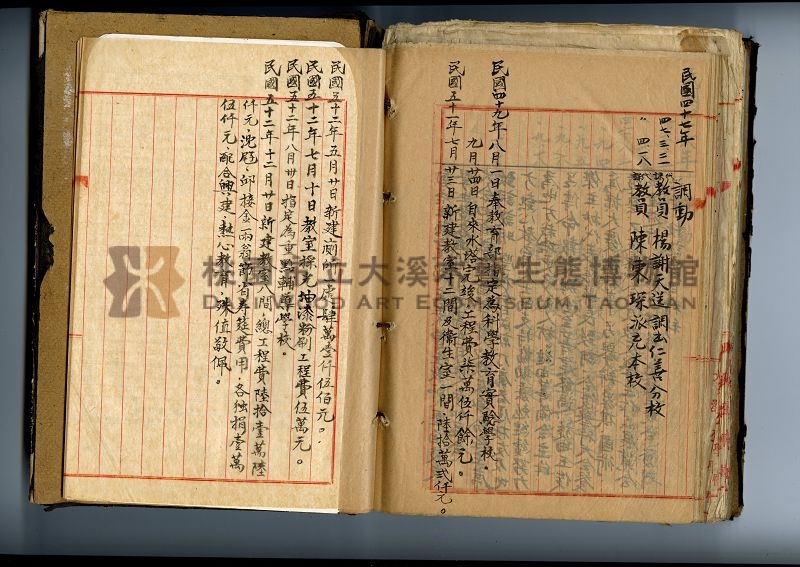 民國四十七年
四七、三、二 調動
教員 楊謝天送調去仁善分校
〃 四、一八 教員 陳東琛派充本校
民國四十九年八月一日奉教育部指定為科學教育實驗學校。
九月廿四日自來水塔完竣、工程費柒萬伍仟餘元。
民國五十一年七月廿三日新建教室十二間及衛生室一間、陸拾萬貳仟元。
民國五十二年五月廿日新建廁所一處肆萬壹仟伍佰元。
民國五十二年七月十日教室採光油漆粉刷工程費伍萬元。
民國五十二年八月廿日指定為重點輔導學校。
民國五十二年十二月廿日新建教室八間、總工程費陸拾壹萬陸
仟元、沈 、邱接金兩翁節省壽筵費用、各独捐壹萬
伍仟元、配合興建、熱心教育、殊值敬佩。
桃園市立大溪木藝生態博物館
DAXI WOOD ART ECOMUSEUM, TAOYUAN